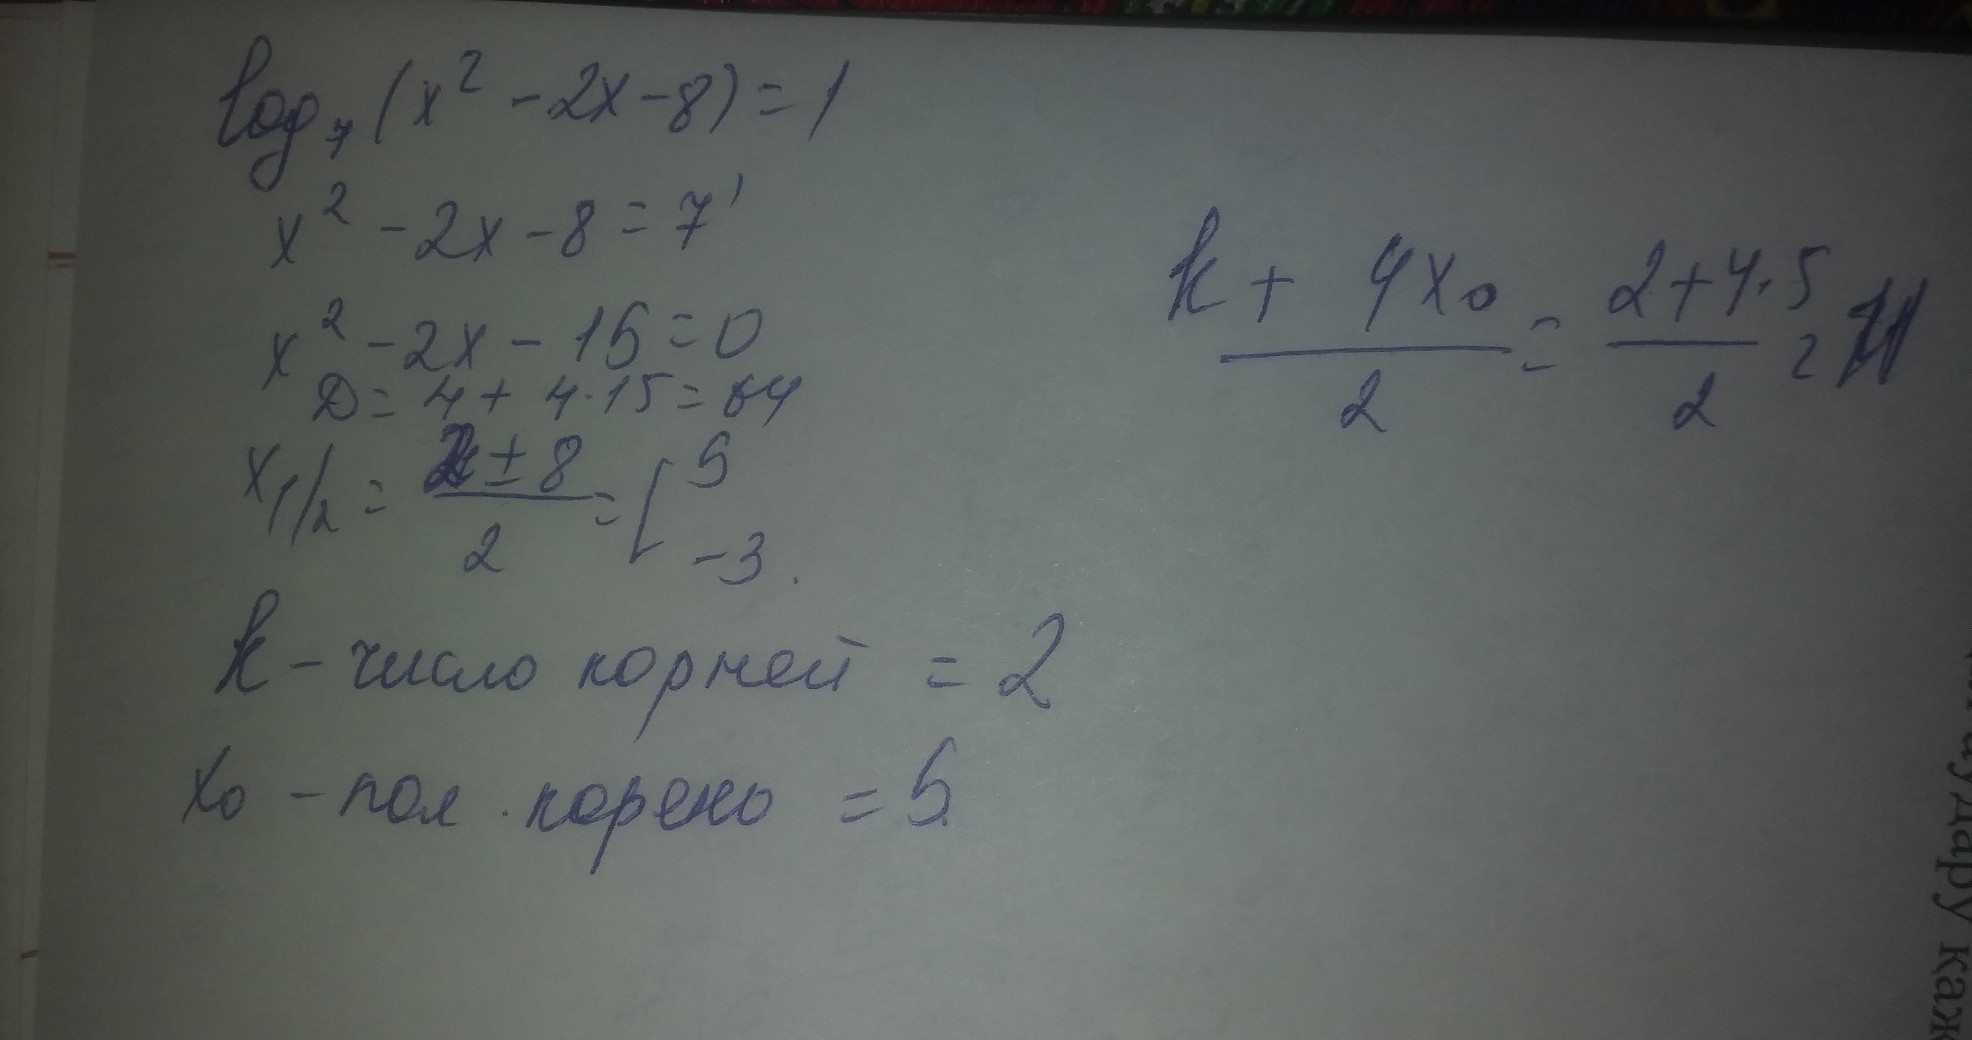 log₇(x² - 2x - 8) = 1
x² - 2x - 8 = 7¹
x² - 2x - 15 = 0
D = 4 + 4·15 = 64
x₁/₂ = (2 ± 8)/2 = [ 5
-3.
k - число корней = 2
x₀ - пол. корень = 5
(k + 4x₀)/2 = (2 + 4·5)/2 = 11
удару каж